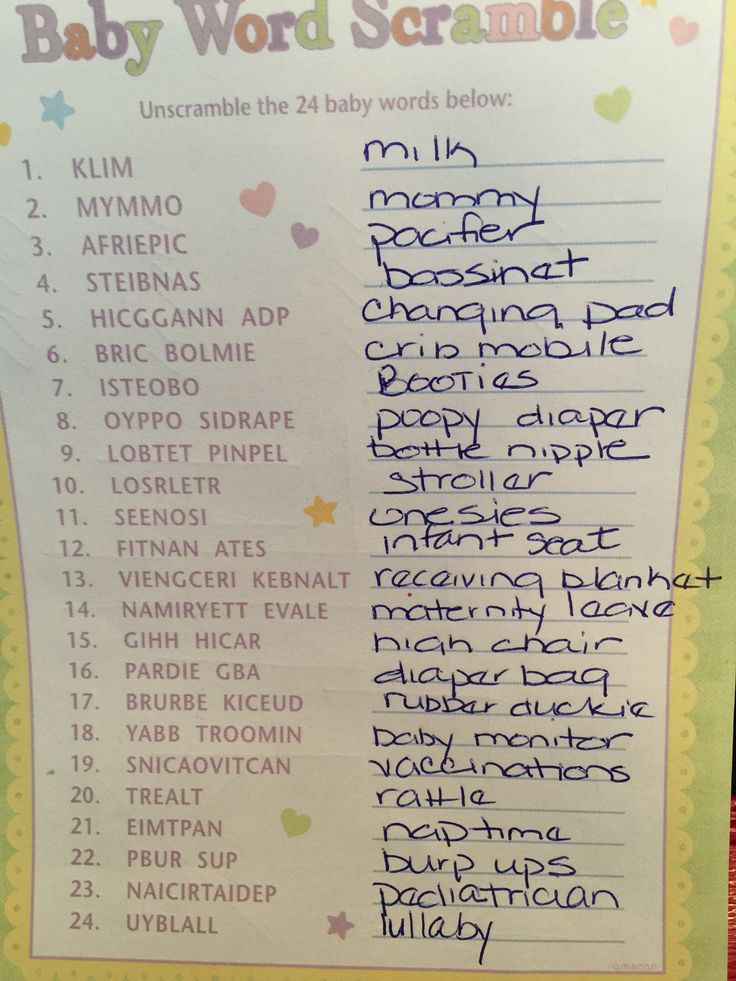 Baby Word Scramble
Unscramble the 24 baby words below:
1. KLIM milk
2. MYMMO mommy
3. AFRIEPIC pacifier
4. STEIBNAS bassinet
5. HICGGANN ADP changing pad
6. BRIC BOLMIE crib mobile
7. ISTEOBO BOOTIES
8. OYPPO SIDRAPE poopy diaper
9. LOBTET PINPEL bottle nipple
10. LOSRLETR stroller
11. SEENOSI onesies
12. FITNAN ATES infant seat
13. VIENGCERI KEBNALT receiving blanket
14. NAMIRYETT EVALE maternity leave
15. GIHH HICAR high chair
16. PARDIE GBA diaper bag
17. BRURBE KICEUD rubber duckie
18. YABB TROOMIN baby monitor
19. SNICAOVITCAN vaccinations
20. TREALT rattle
21. EIMTPAN naptime
22. PBUR SUP burp ups
23. NAICIRTAIDEP pediatrician
24. UYBLALL lullaby
amscan